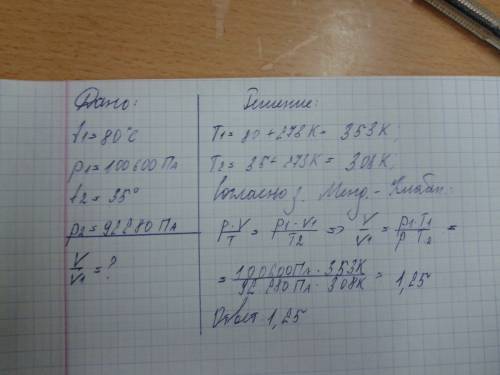 Дано:
t1 = 80°C
p1 = 100600 Па
t2 = 35°
p2 = 92280 Па
V/V1 = ?
Решение:
T1 = 80 + 273К = 353К;
T2 = 35 + 273К = 308К;
Согласно з. Менд.-Клапан.:
p·V/T = p1·V1/T2 => V/V1 = p1·T1/p T2 =
= 100600Па·353К/92280Па·308К = 1,25
Ответ 1,25